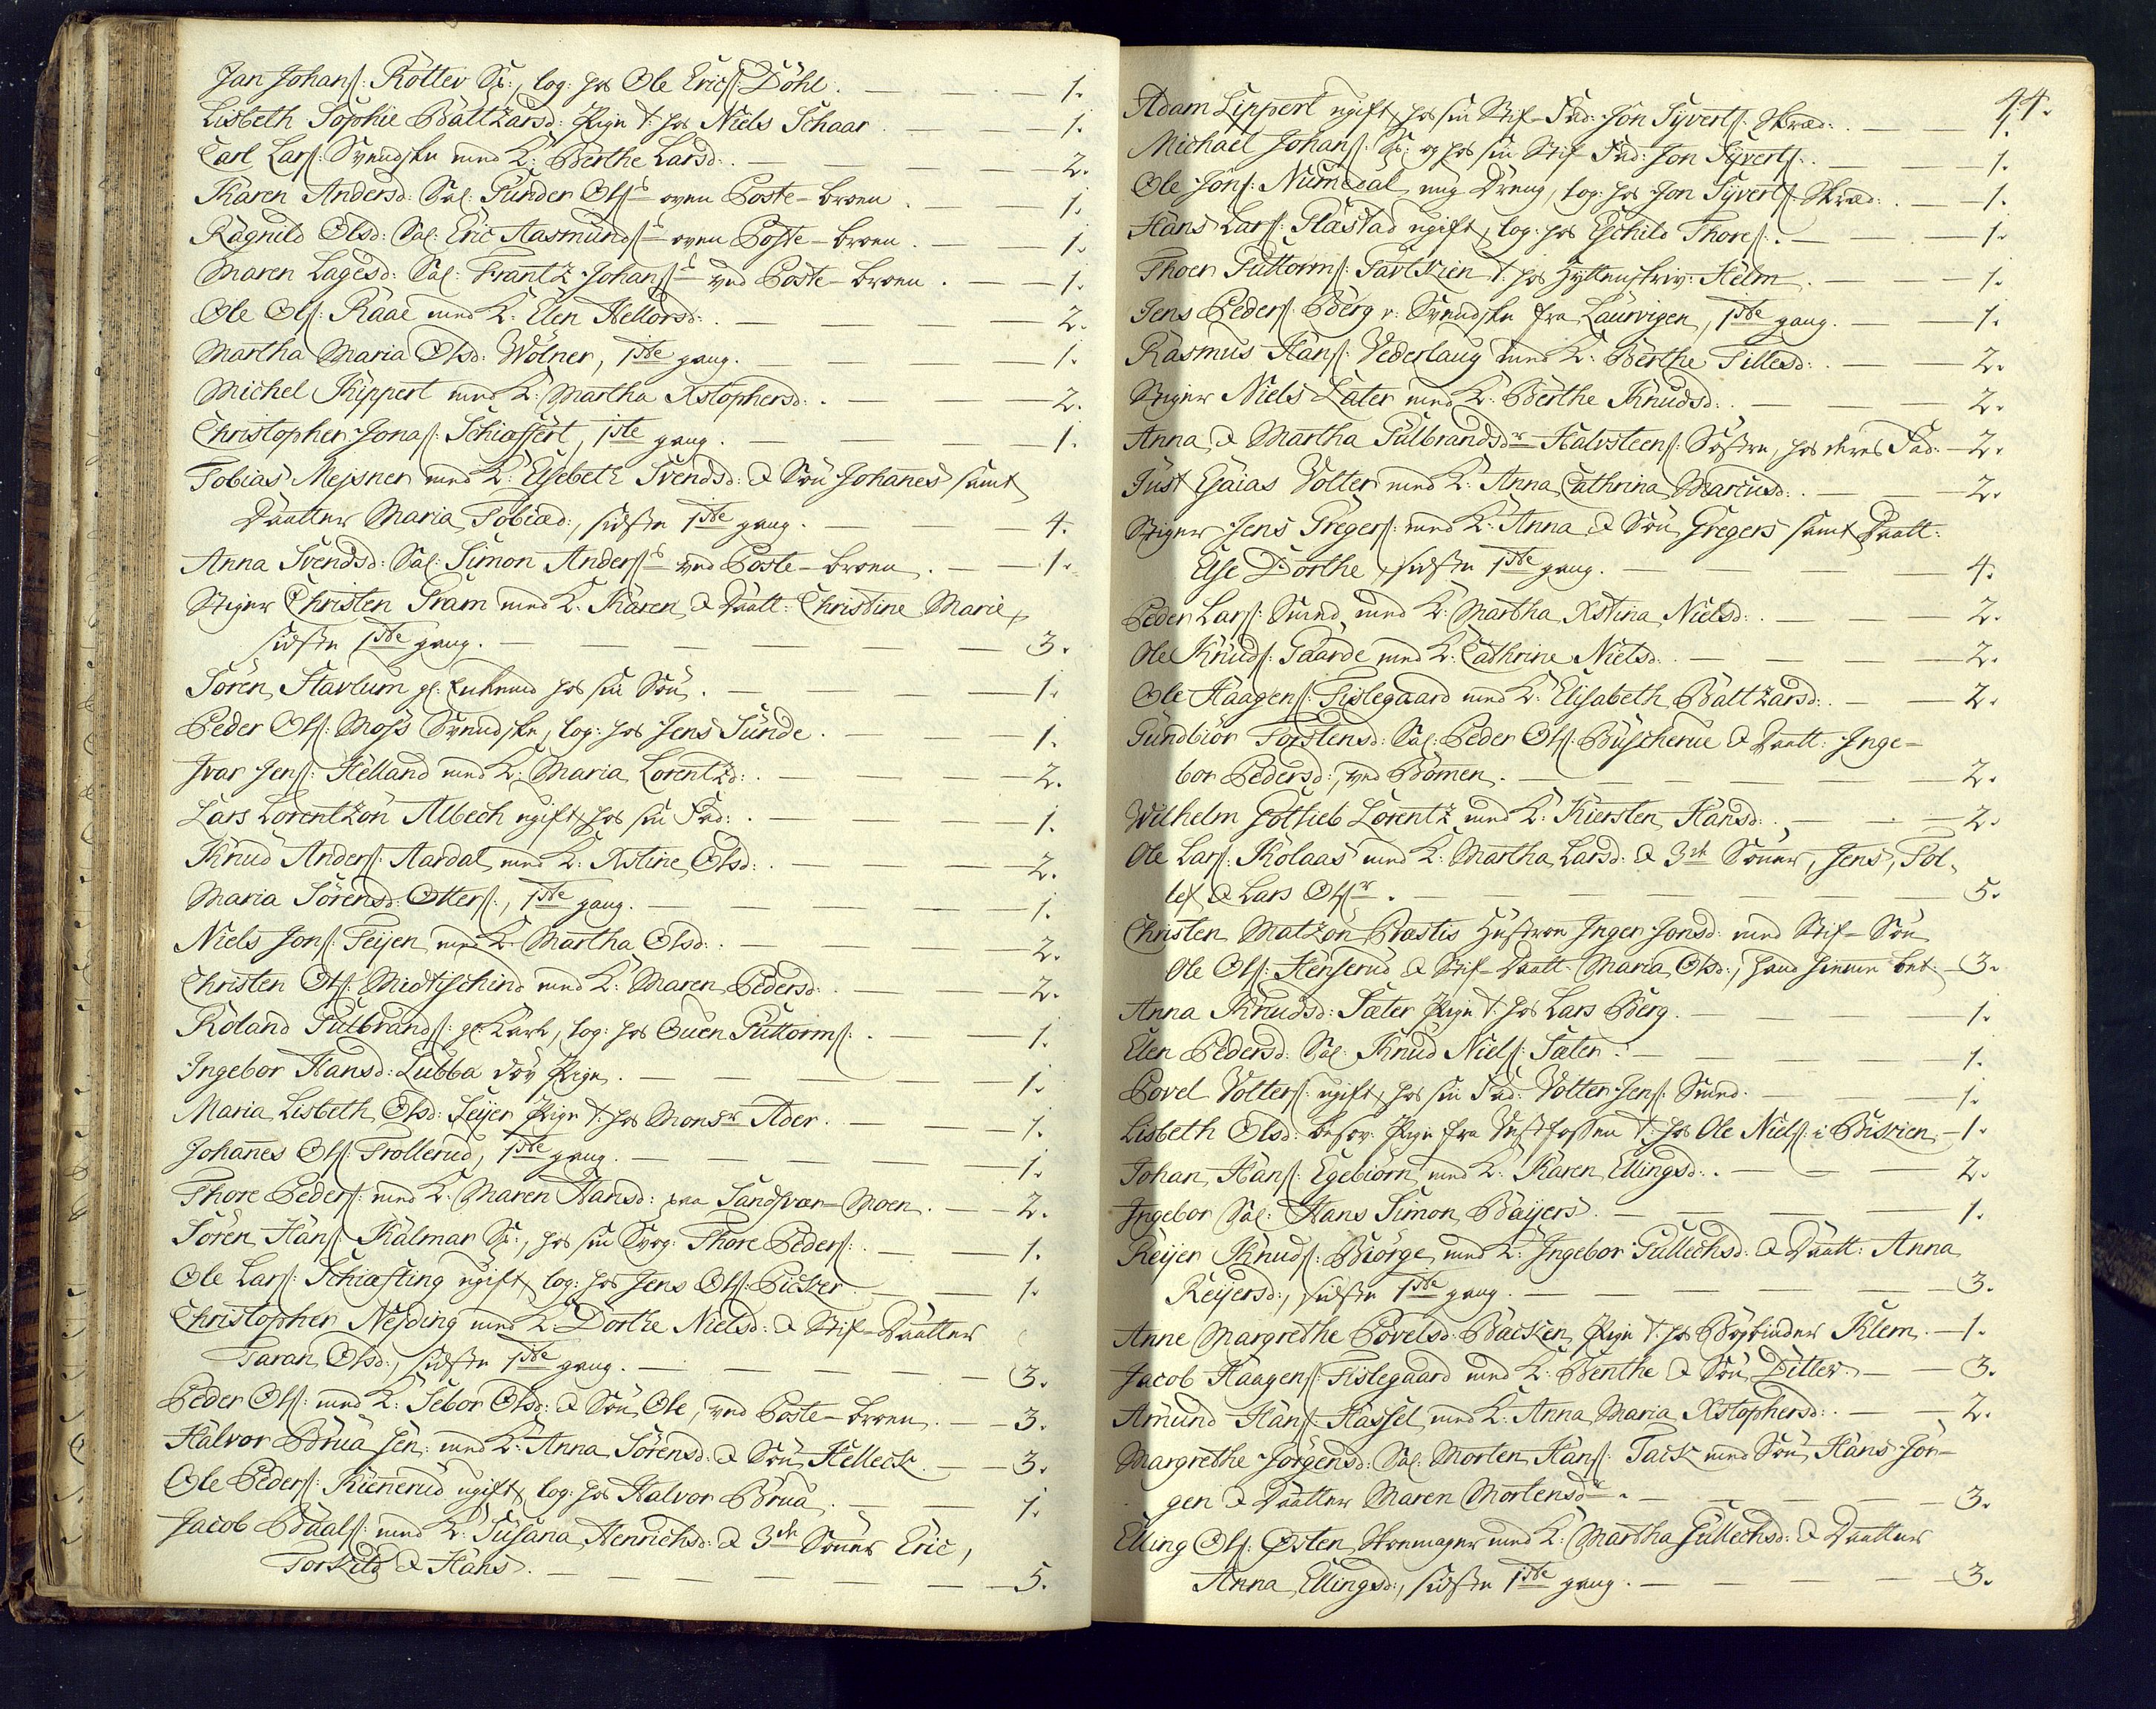 Jan Johans: Rötter Sv:, log: hos Ole Erics: Döhl. — 1.
Lisbeth Sophie Baltzarsd: Pige t: hos Niels Schaar — 1.
Carl Lars: Svendske med K: Berthe Larsd: — 2.
Karen Andersd: Sal: Gunder Ols:s oven Poste-broen. — 1.
Ragnild Olsd: Sal: Eric Aasmunds:s oven Poste-broen. — 1.
Maren Lagesd: Sal: Frantz Johans:s ved Poste-broen. — 1.
Ole Ols: Raae med K: Elen Hellorsd: — 2.
Martha Maria Olsd: Wölner, 1ste gang. — 1.
Michel Kippert med K: Martha Xstophersd: — 2.
Christopher Jonas: Schiæssert, 1ste gang. — 1.
Tobias Mejsner med K: Elsebeth Svendsd: & Sön Johanes samt
Daatter Maria Tobiæd:, sidste 1ste gang. — 4.
Anna Svendsd: Sal: Simon Anders:s ved Poste-broen. — 1.
Stiger Christen Gram med K: Karen & Daatt: Christine Marie,
sidste 1ste gang. — 3.
Sören Stavlum gl: Enkemd hos sin Sön. — 1.
Peder Ols: Moss Svendske, log: hos Jens Sunde. — 1.
Ivar Jens: Helland med K: Maria Lorentzd: — 2.
Lars Lorentzön Albech ugift, hos sin Fad: — 1.
Knud Anders: Aardal med K: Xstine Olsd: — 2.
Maria Sörensd: Otters:, 1ste gang. — 1.
Niels Jons: Teijen med K: Martha Olsd: — 2.
Christen Ols: Midtischind med K: Maren Pedersd: — 2.
Roland Gulbrands: gl: Karl, log: hos Ouen Guttorms: — 1.
Ingebor Hansd: Lubba döv Pige. — 1.
Maria Lisbeth Olsd: Seijer Pige t: hos Monsr Ader. — 1.
Johanes Ols: Trollerud, 1ste gang. — 1.
Thore Peders: med K: Maren Hansd: paa Sandsvær-Moen. — 2.
Sören Hans: Kalmar Sv:, hos sin Svog: Thore Peders: — 1.
Ole Lars: Schiæfting ugift, log: hos Jens Ols: Pucker. — 1.
Christopher Nejding med K: Dorthe Nielsd: & Stif-Daatter
Taran Olsd:, sidste 1ste gang. — 3.
Peder Ols: med K: Sebor Olsd: & Sön Ole, ved Poste-broen. — 3.
Halvor Brua sen: med K: Anna Sörensd: & Sön Helleck — 3.
Ole Peders: Kienerud ugift, log: hos Halvor Brua. — 1.
Jacob Baals: med K: Susana Henrichsd: & 3de Sönner Eric,
Torkild & Hans. — 5.
44.
Adam Lippert ugift, hos sin Stif-Fad: Jon Syverts: Skræd: — 1.
Michael Johans: Sv: og hos sin Stif-Fad: Jon Syverts: — 1.
Ole Jons: Numedal ung Dreng, log: hos Jon Syverts: Skræd: — 1.
Hans Lars: Flastad ugift, log: hos Eschild Thores: — 1.
Thoer Guttorms: Garlsien t: hos Hyttenskriv: Helm. — 1.
Jens Peders: Berg v: Svendske fra Laurvigen, 1ste gang. — 1.
Rasmus Hans: Vederlaug med K: Berthe Tillesd: — 2.
Stiger Niels Later med K: Berthe Knudsd: — 2.
Anna & Martha Gulbrandsdr Halvsteens: Söstre, hos deres Fad: — 2.
Just Esaias Volter med K: Anna Cathrina Marcusd: — 2.
Stiger Jens Gregers: med K: Anna & Sön Gregers samt Daatt:
Else Dorthe, sidste 1ste gang. — 4.
Peder Lars: Smed, med K: Martha Xstina Nielsd: — 2.
Ole Knuds: Gaarde med K: Cathrine Nielsd: — 2.
Ole Haagens: Fislegaard med K: Elisabeth Baltzarsd: — 2.
Gundbiör Torstensd: Sal: Peder Ols: Buscherue & Daatt: Inge-
bor Pedersd:, ved Bomen. — 2.
Wilhelm Gotlieb Lorentz med K: Kiersten Hansd: — 2.
Ole Lars: Kolaas med K: Martha Larsd: & 3de Sönner, Jens, Tol-
lef & Lars Olsr. — 5.
Christen Matzön Prætis Hustroe Inger Jonsd: med Stif-Sön
Ole Ols: Henserud & Stif-Daatt: Maria Olsd:, hand hieme bet: — 3.
Anna Knudsd: Sæter Pige t: hos Lars Berg. — 1.
Elen Pedersd: Sal: Knud Niels: Sæter. — 1.
Povel Volters: ugift, hos sin Fad: Volter Jens: Smed. — 1.
Lisbeth Olsd: besov: Pige fra Vestfossen t: hos Ole Niels: i Bisvien — 1.
Johan Hans: Egebiörn med K: Karen Ellingsd: — 2.
Ingebor Sal: Hans Simon Baijers. — 1.
Reijer Knuds: Biörge med K: Ingebor Gullechsd: & Daatt: Anna
Reijersd:, sidste 1ste gang. — 3.
Anne Margrethe Povelsd: Backen Pige t: hos Bogbinder Klem. — 1.
Jacob Haagens: Fislegaard med K: Benthe & Sön Ditlev. — 3.
Amund Hans: Hassel med K: Anna Maria Xstophersd: — 2.
Margrethe Jörgensd: Sal: Morten Hans: Tack med Sön Hans Jör-
gen & Daatter Maren Mortensdr. — 3.
Elling Ols: Östen Skoemager med K: Martha Gullechsd: & Daatter
Anna Ellingsd:, sidste 1ste gang. — 3.